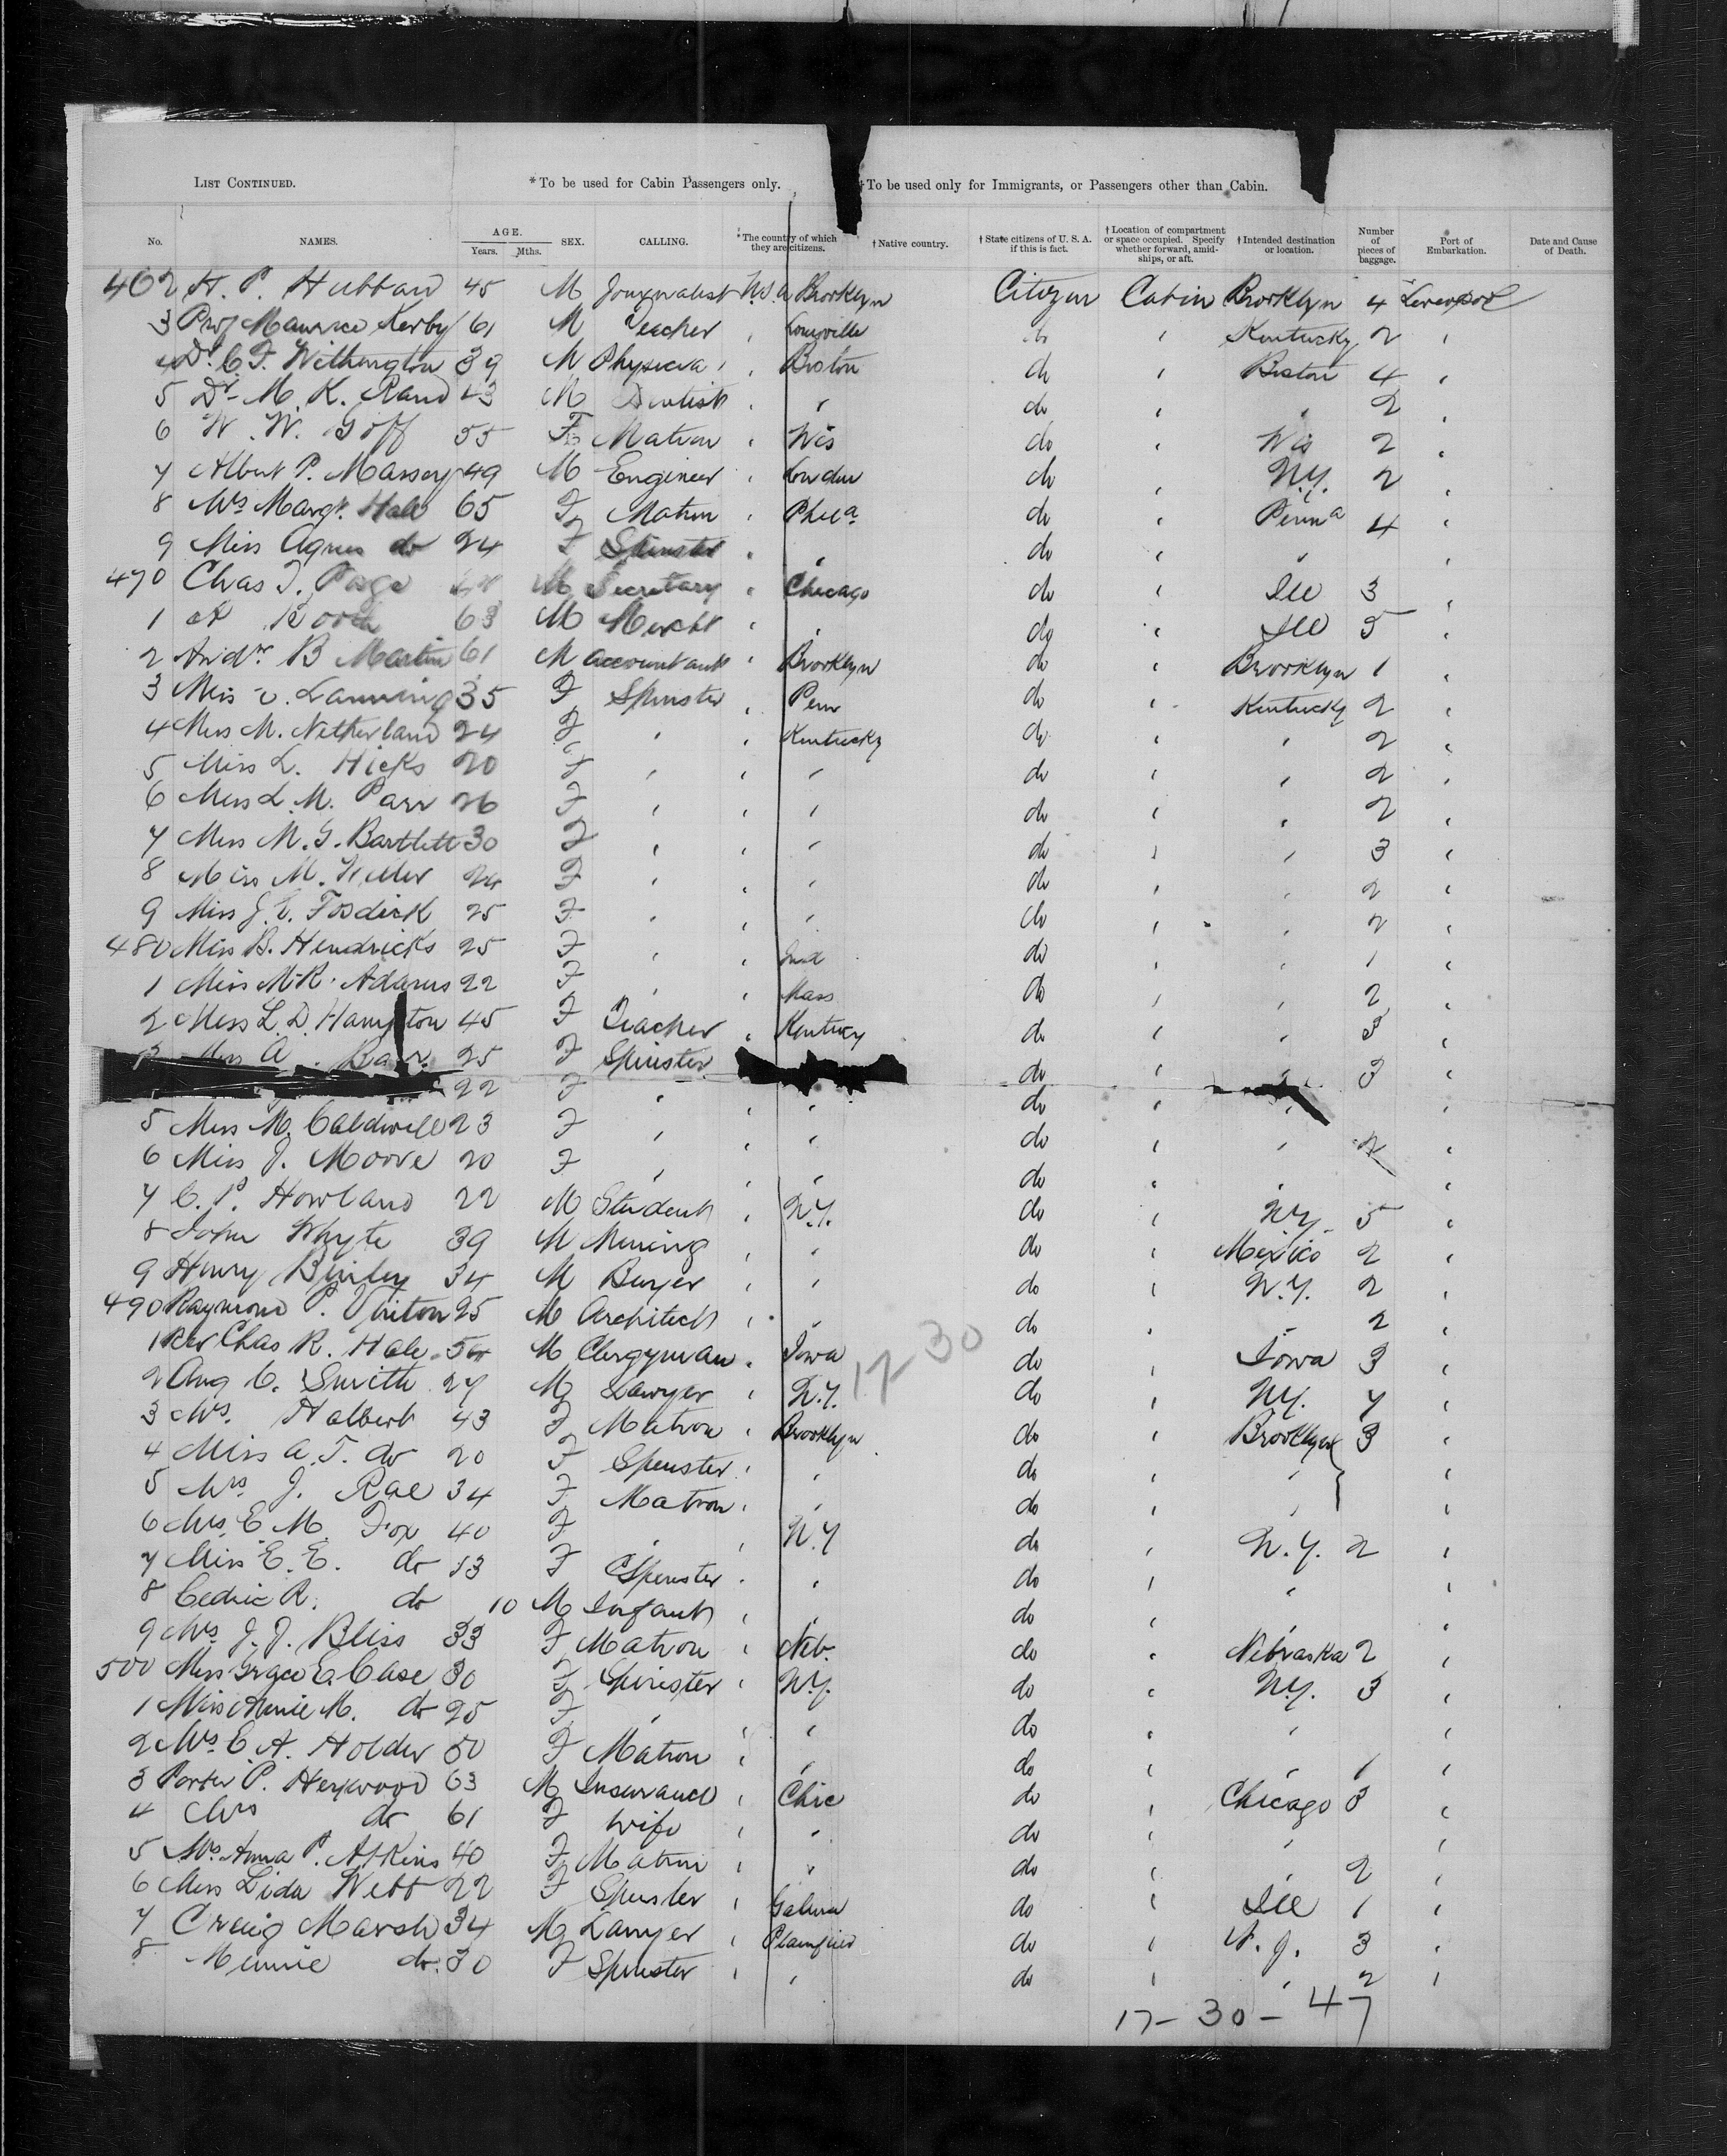 LIST CONTINUED. * To be used for Cabin Passengers only. † To be used only for Immigrants, or Passengers other than Cabin.
No. NAMES. AGE. Years. Mths. SEX. CALLING. * The country of which they are citizens. † Native country. † State citizens of U. S. A. if this is fact. † Location of compartment or space occupied. Specify whether forward, amidships, or aft. † Intended destination or location. Number of pieces of baggage. Port of Embarkation. Date and Cause of Death.
462 H. P. Hubbard 45 M Journalist Brooklyn Citizen Cabin Brooklyn 4 Liverpool
3 Prof Maurice Kerby 61 M Teacher " Louisville do " Kentucky 2 "
4 Dr. C. F. Withington 39 M Physician " Boston do " Boston 4 "
5 Dr. M. K. Rand 43 M Dentist " " do " " 2 "
6 W. W. Goff 55 F Matron " Wis do " Wis 2 "
7 Albert P. Massey 49 M Engineer " London do " N.Y. 2 "
8 Mrs Margt. Hale 65 F Matron " Phila do " Penna 4 "
9 Miss Agnes do 24 F Spinster " " do " " "
470 Chas T. Page M Secretary " Chicago do " Ill 3 "
1 63 M Mercht " " do " Ill 5 "
2 Andw. B Martin 61 M Accountant " Brooklyn do " Brooklyn 1 "
3 Miss Lanning 35 F Spinster " Penn do " Kentucky 2 "
4 Miss M. Netherland 24 F " " Kentucky do " " 2 "
5 Miss L. Hicks 20 F " " " do " " 2 "
6 Miss L. M. Parr 26 F " " " do " " 2 "
7 Miss M. G. Bartlett 30 F " " " do " " 3 "
8 Miss M. 24 F " " " do " " 2 "
9 Miss J. E. Fosdick 25 F " " " do " " 2 "
480 Miss B. Hendricks 25 F " " Ind do " " 1 "
1 Miss M. R. Adams 22 F " " Mass do " " 2 "
2 Miss L. D. Hampton 45 F Teacher " Kentucy do " " 3 "
3 Miss A. Barr 25 F Spinster do " 3 "
22 F " " " do " " "
5 Miss M. Caldwell 23 F " " " do " " 2 "
6 Miss J. Moore 20 F " " " do " " "
7 C. P. Howland 22 M Student " N.Y. do " N.Y. 5 "
8 John Whyte 39 M Mining " " do " Mexico 2 "
9 Henry 34 M Buyer " " do " N.Y. 2 "
490 Raymond P. 25 M Architect " " do " " 2 "
1 Rev Chas R. Hale M Clergyman " Iowa do " Iowa 3 "
17-30
2 Aug C. Smith 27 M Lawyer " N.Y. do " N.Y. 7 "
3 Mrs. Halbert 43 F Matron " Brooklyn do " Brooklyn 3 "
4 Miss A. T. do 20 F Spinster " " do " " "
5 Mrs J. Rae 34 F Matron " " do " " "
6 Mrs. E. M. Fox 40 F " " N.Y do " N.Y. 2 "
7 Miss E. E. do 13 F Spinster " " do " " "
8 Cedric R. do 10 M Infant " " do " " "
9 Mrs J. J. Bliss 33 F Matron " Neb. do " Nebraska 2 "
500 Miss Grace E. Case 30 F Spinster " N.Y. do " N.Y. 3 "
1 Miss Annie M. do 25 F " " " do " " "
2 Mrs. E. A. Holder 50 F Matron " " do " " 1 "
3 Porter P. Heywood 63 M Insurance " Chic do " Chicago 3 "
4 Mrs do 61 F Wife " " do " " "
5 Mrs. Anna P. Atkins 40 F Matron " " do " " 2 "
6 Miss Lida Webb 22 F Spinster " Galena do " Ill 1 "
7 Craig Marsh 34 M Lawyer " Plainfield do " N. J. 3 "
8 Minnie do. 30 F Spinster " " do " " 2 "
17-30-47